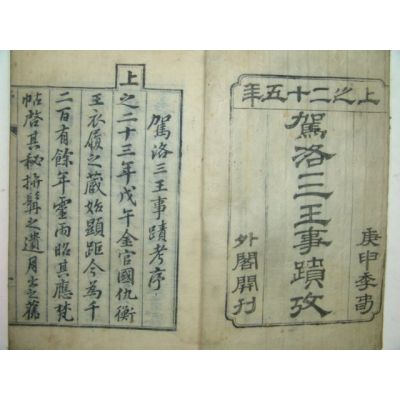 上之二十五年
庚申季春
駕洛三王事蹟攷
外閣開刊
駕洛三王事蹟考序
上之二十三年戊午金官國仇衡
王衣履之藏始顯距今為千
二百有餘年靈雨昭其應梵
帖啓其秘之遺月出之舊